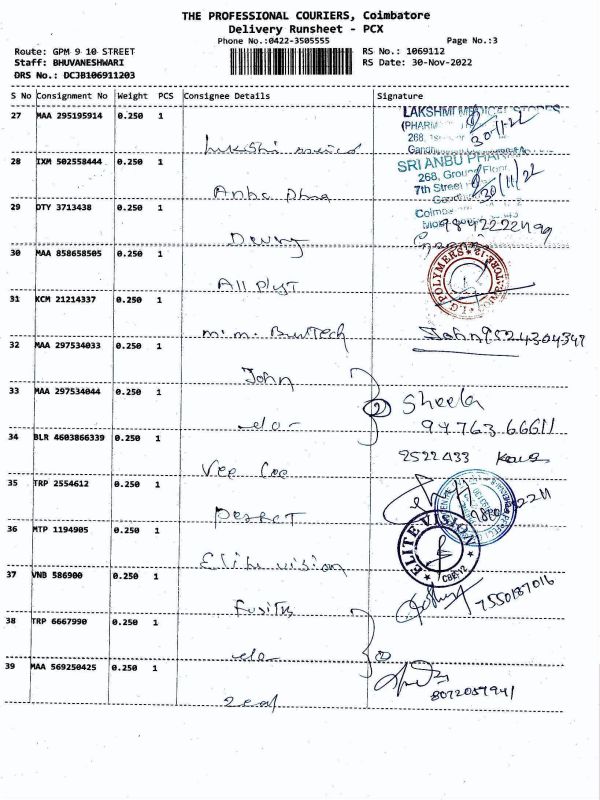 THE PROFESSIONAL COURIERS, Coimbatore
Delivery Runsheet - PCX
Phone No.:0422-3505555 Page No.:3
Route: GPM 9 10 STREET RS No.: 1069112
Staff: BHUVANESHWARI RS Date: 30-Nov-2022
DRS No.: DCJB106911203
S No Consignment No Weight PCS Consignee Details Signature
27 MAA 295195914 0.250 1
LAKSHMI MEDICAL STORES
(PHARM
268,
30-11-22
28 IXM 502558444 0.250 1
SRI ANBU PHARMA
268, Ground Floor
7th Street
30/11/22
29 DTY 3713438 0.250 1
9842222499
30 MAA 858658505 0.250 1
POLYMERS
31 KCM 21214337 0.250 1
John 9524304347
32 MAA 297534033 0.250 1
John
33 MAA 297534044 0.250 1
2 Sheela
94763 66611
-do-
34 BLR 4603866339 0.250 1
2522433
Vee Cee
35 TRP 2554612 0.250 1
36 MTP 1194905 0.250 1
ELITE VISION
CBE-12
Elite vision
37 VNB 586900 0.250 1
7550187016
38 TRP 6667990 0.250 1
-do-
39 MAA 569250425 0.250 1
8072057941